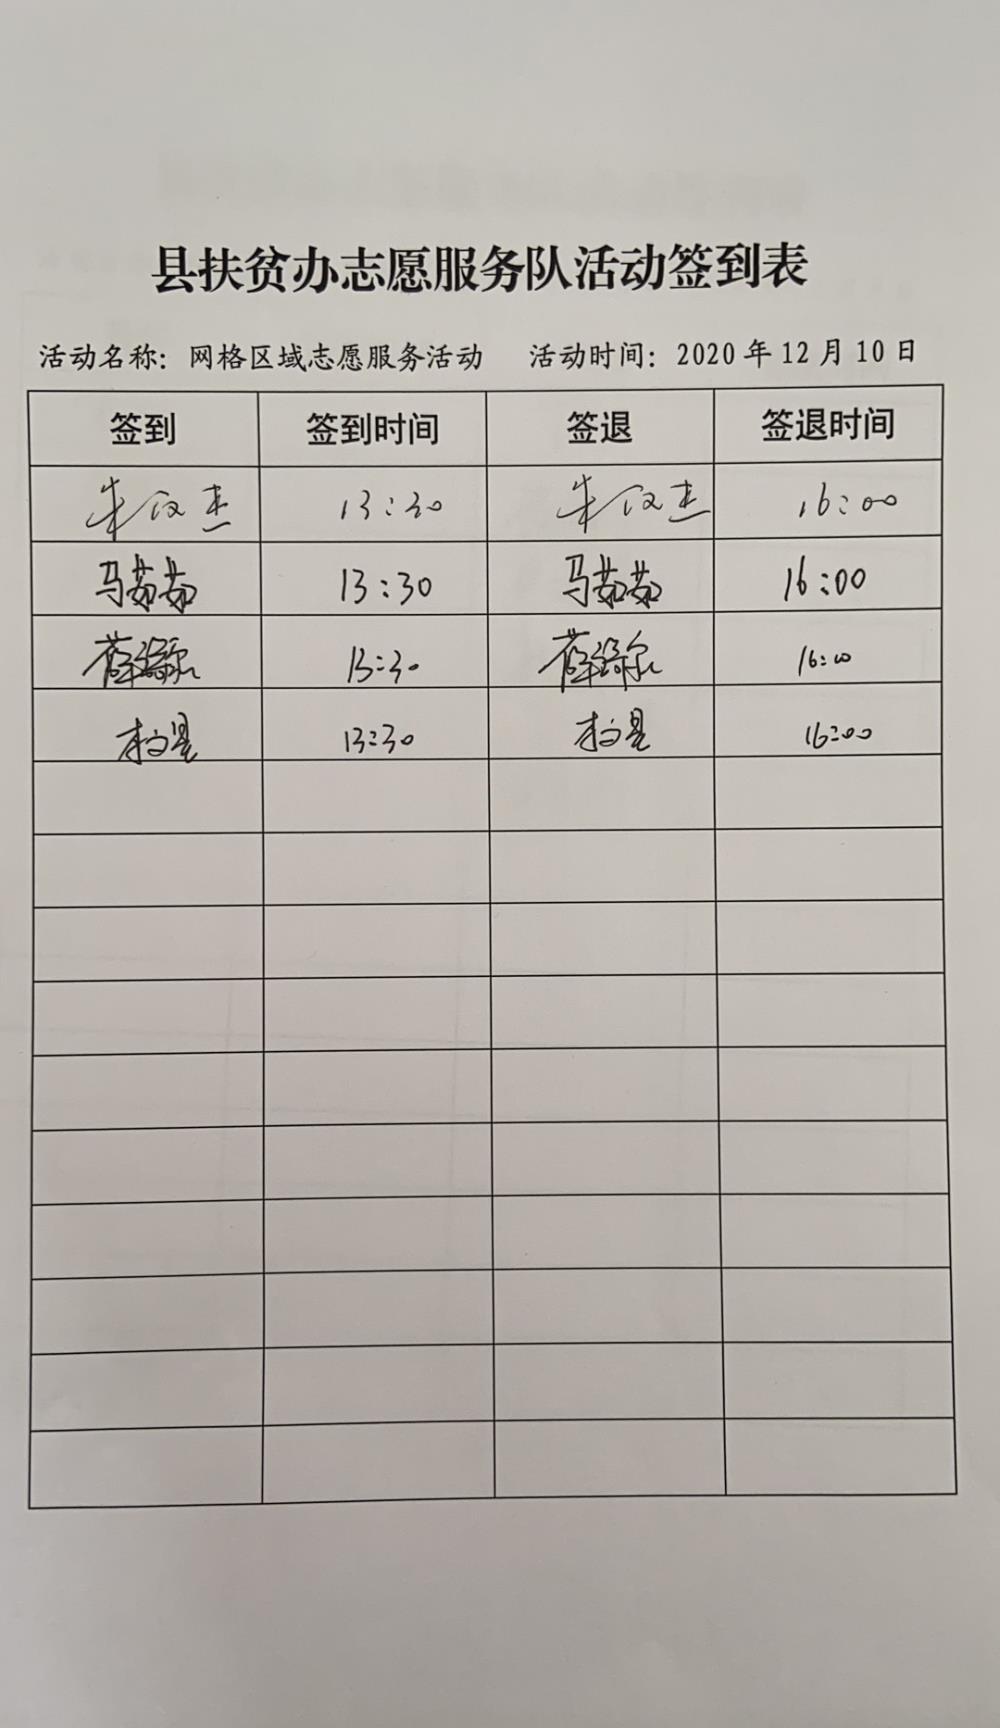 县扶贫办志愿服务队活动签到表
活动名称：网格区域志愿服务活动 活动时间：2020年12月10日
签到 签到时间 签退 签退时间
朱汉杰 13:30 朱汉杰 16:00
马茹茹 13:30 马茹茹 16:00
薛 13:30 薛 16:00
13:30 16:00